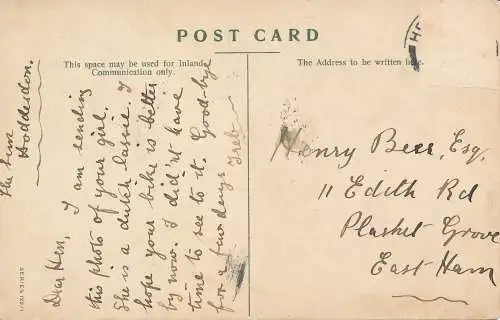 POST CARD
This space may be used for Inland
Communication only.
The Address to be written here.
Hoddesdon.
Dear Hen, I am sending
this photo of your girl.
She is a dutch lassie. I
hope your bike is better
by now. I did'nt have
time to see to it. Good-bye
for a few days
Henry Beer, Esq.
11 Edith Rd
Plashet Grove
East Ham